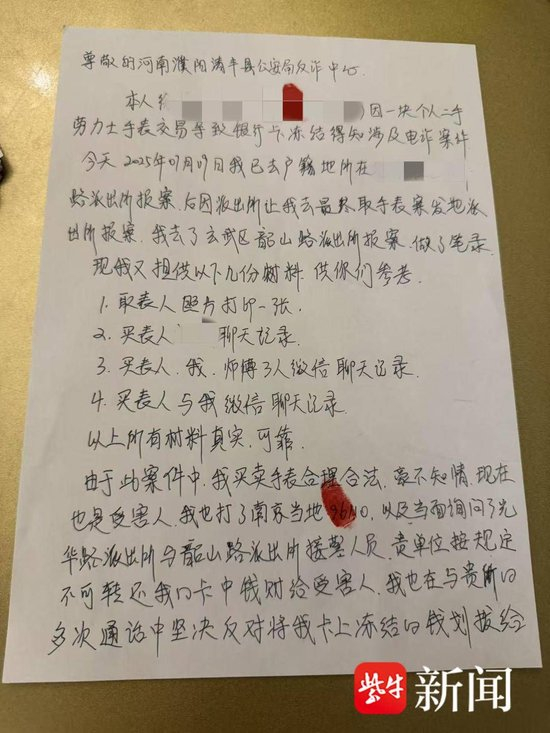 尊敬的河南濮阳清丰县公安局反诈中心.
本人 因一块个人二手
劳力士手表交易导致银行卡冻结得知涉及电诈案件
今天2025年01月09日我已去户籍地所在
路派出所报案.后因派出所让我去最终取手表案发地派
出所报案.我去了玄武区韶山路派出所报案.做了笔录.
现我又提供以下几份材料.供你们参考.
1. 取表人照片打印一张.
2. 买表人 聊天记录.
3. 买表人.我.师傅3人微信聊天记录.
4. 买表人与我微信聊天记录.
以上所有材料真实.可靠.
由于此案件中.我买卖手表合理合法.毫不知情.现在
也是受害人.我也打了南京当地96110.以及当面询问了光
华路派出所与韶山路派出所接警人员.贵单位按规定
不可转还我的卡中钱财给受害人.我也在与贵所的
多次通话中坚决反对将我卡上冻结的钱划拨给
紫牛新闻